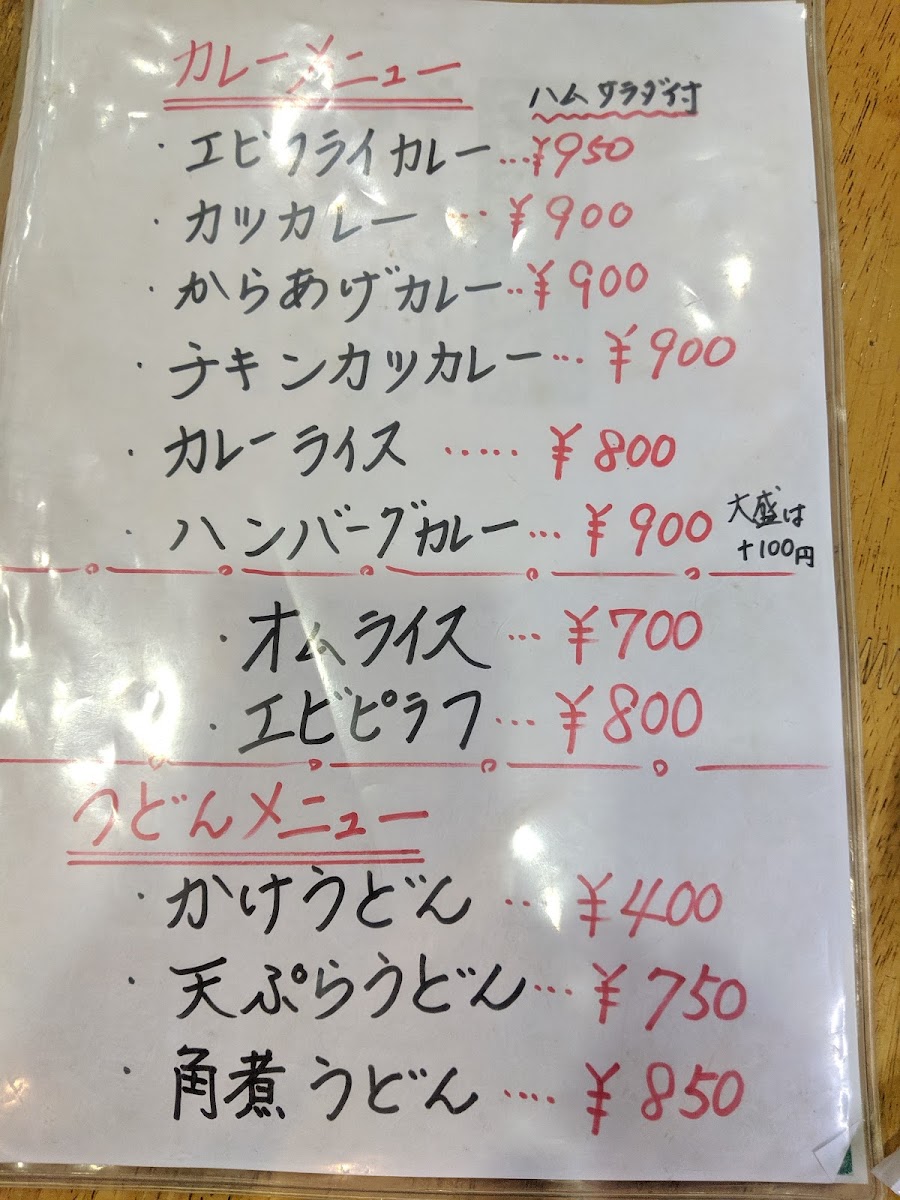 カレーメニュー
ハムサラダ付
・エビフライカレー…¥950
・カツカレー…¥900
・からあげカレー…¥900
・チキンカツカレー…¥900
・カレーライス……¥800
・ハンバーグカレー…¥900
大盛は
+100円
・オムライス…¥700
・エビピラフ…¥800
うどんメニュー
・かけうどん…¥400
・天ぷらうどん…¥750
・角煮うどん…¥850